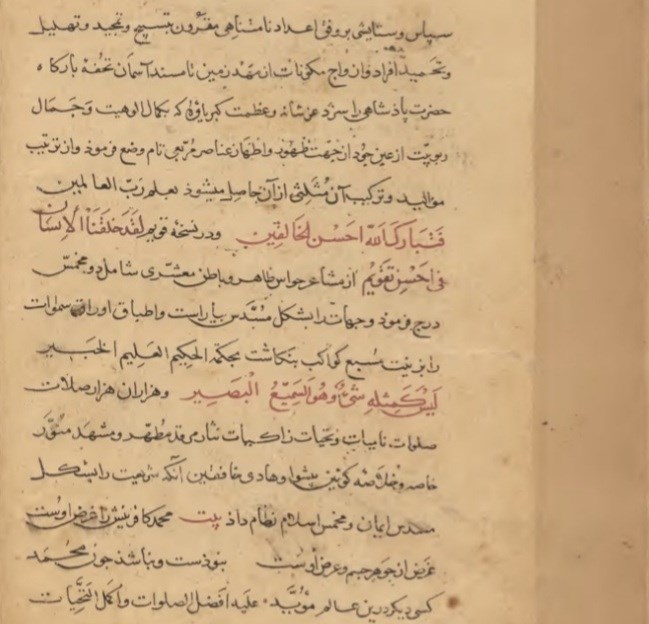 سپاس و ستایشی بر وفق اعداد نامتناهی مقرون تسبیح و تمجید و تهلیل
و تحمید افراد و ازواج مکونات از مهد زمین تا مسند آسمان تحفهٔ بارکاه
حضرت پاذشاهی را سزد عز شانه و عظمت کبریاؤه که بکمال الوهیت و جمال
ربوبیّت از عین جود از جهت ظهور و اظهار عناصر مربّعی تام وضع فرموذ و از ترتیب
موالید و ترکیب آن مثلثی از آن حاصل میشوذ بعلم ربّ العالمین
فَتَبارَكَ اللّه احسن الخالقین و در نسخهٔ قویم لَقَد خَلَقنَا الاِنسَانَ
فی احسن تقویم از مشاعر حواس ظاهر و باطن معشّری شامل دو مخمّس
درج فرموذ و جهات را بشکل مسدّس بیاراست و اطباق اوراق سموات
را بزینت سبع کواکب بنکاشت بحکمة الحکیم العلیم الخبیر
لَیسَ کَمِثلِهِ شَیءٌ وَهُوَ السَّمِیعُ البَصِیر و هزاران هزار صلات
صلوات نامیات و تحیّات زاکیات نثار مرقد مطهّر و مشهد منوّر
خاصه و خلاصهٔ کونین پیشوا و هادی خافقین آنکه شریعت را بشکل
مسدس ایمان و مخمس اسلام نظام داذ بیت محمد کافرینش را غرض اوست
غرض از جوهر جسم و عرض اوست نبوذست و نباشذ جون محمد
کسی دیکر درین عالم مؤیّد علیه افضل الصلوات و اکمل التحیّات